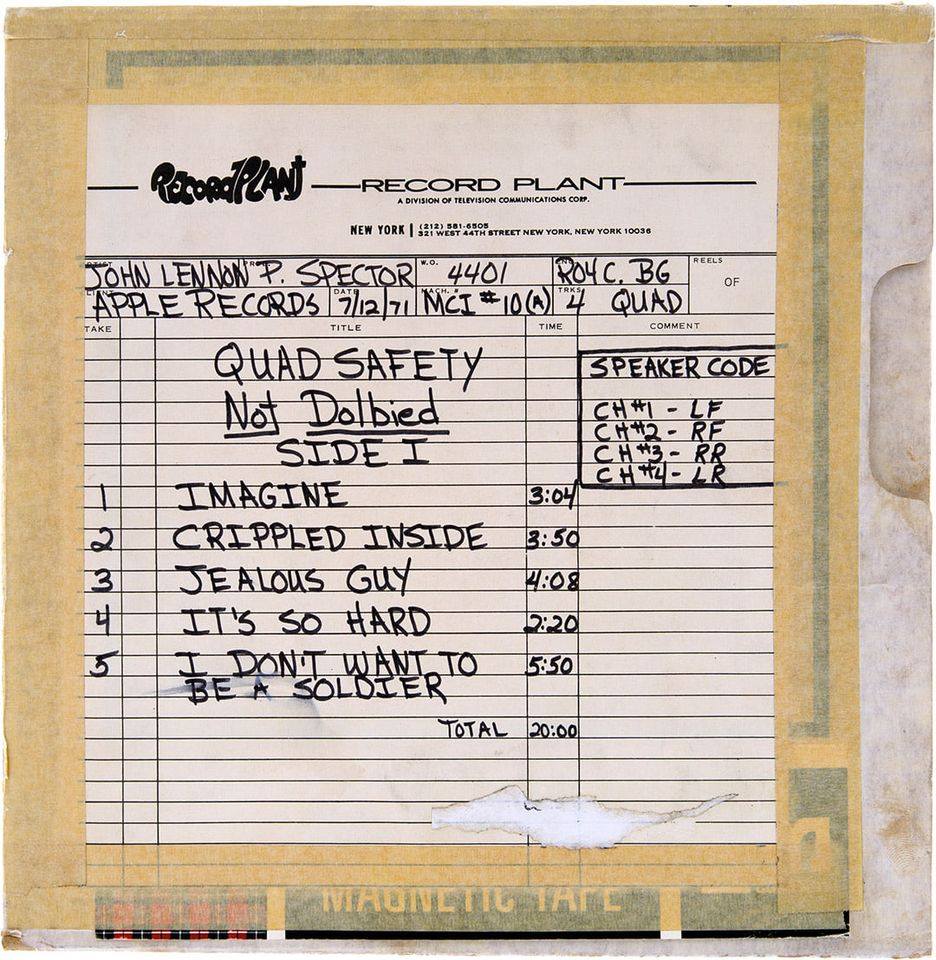 RECORD PLANT
RECORD PLANT
A DIVISION OF TELEVISION COMMUNICATIONS CORP.
NEW YORK | (212) 581-6505
321 WEST 44TH STREET NEW YORK, NEW YORK 10036
W.O. REELS
JOHN LENNON P. SPECTOR 4401 ROY C. BG OF
DATE MACH. # TRKS
APPLE RECORDS 7/12/71 MCI #10(A) 4 QUAD
TAKE TITLE TIME COMMENT
QUAD SAFETY
Not Dolbied
SIDE I
SPEAKER CODE
CH#1 - LF
CH#2 - RF
CH#3 - RR
CH#4 - LR
1 IMAGINE 3:04
2 CRIPPLED INSIDE 3:50
3 JEALOUS GUY 4:08
4 IT'S SO HARD 2:20
5 I DON'T WANT TO 5:50
BE A SOLDIER
TOTAL 20:00
MAGNETIC TAPE